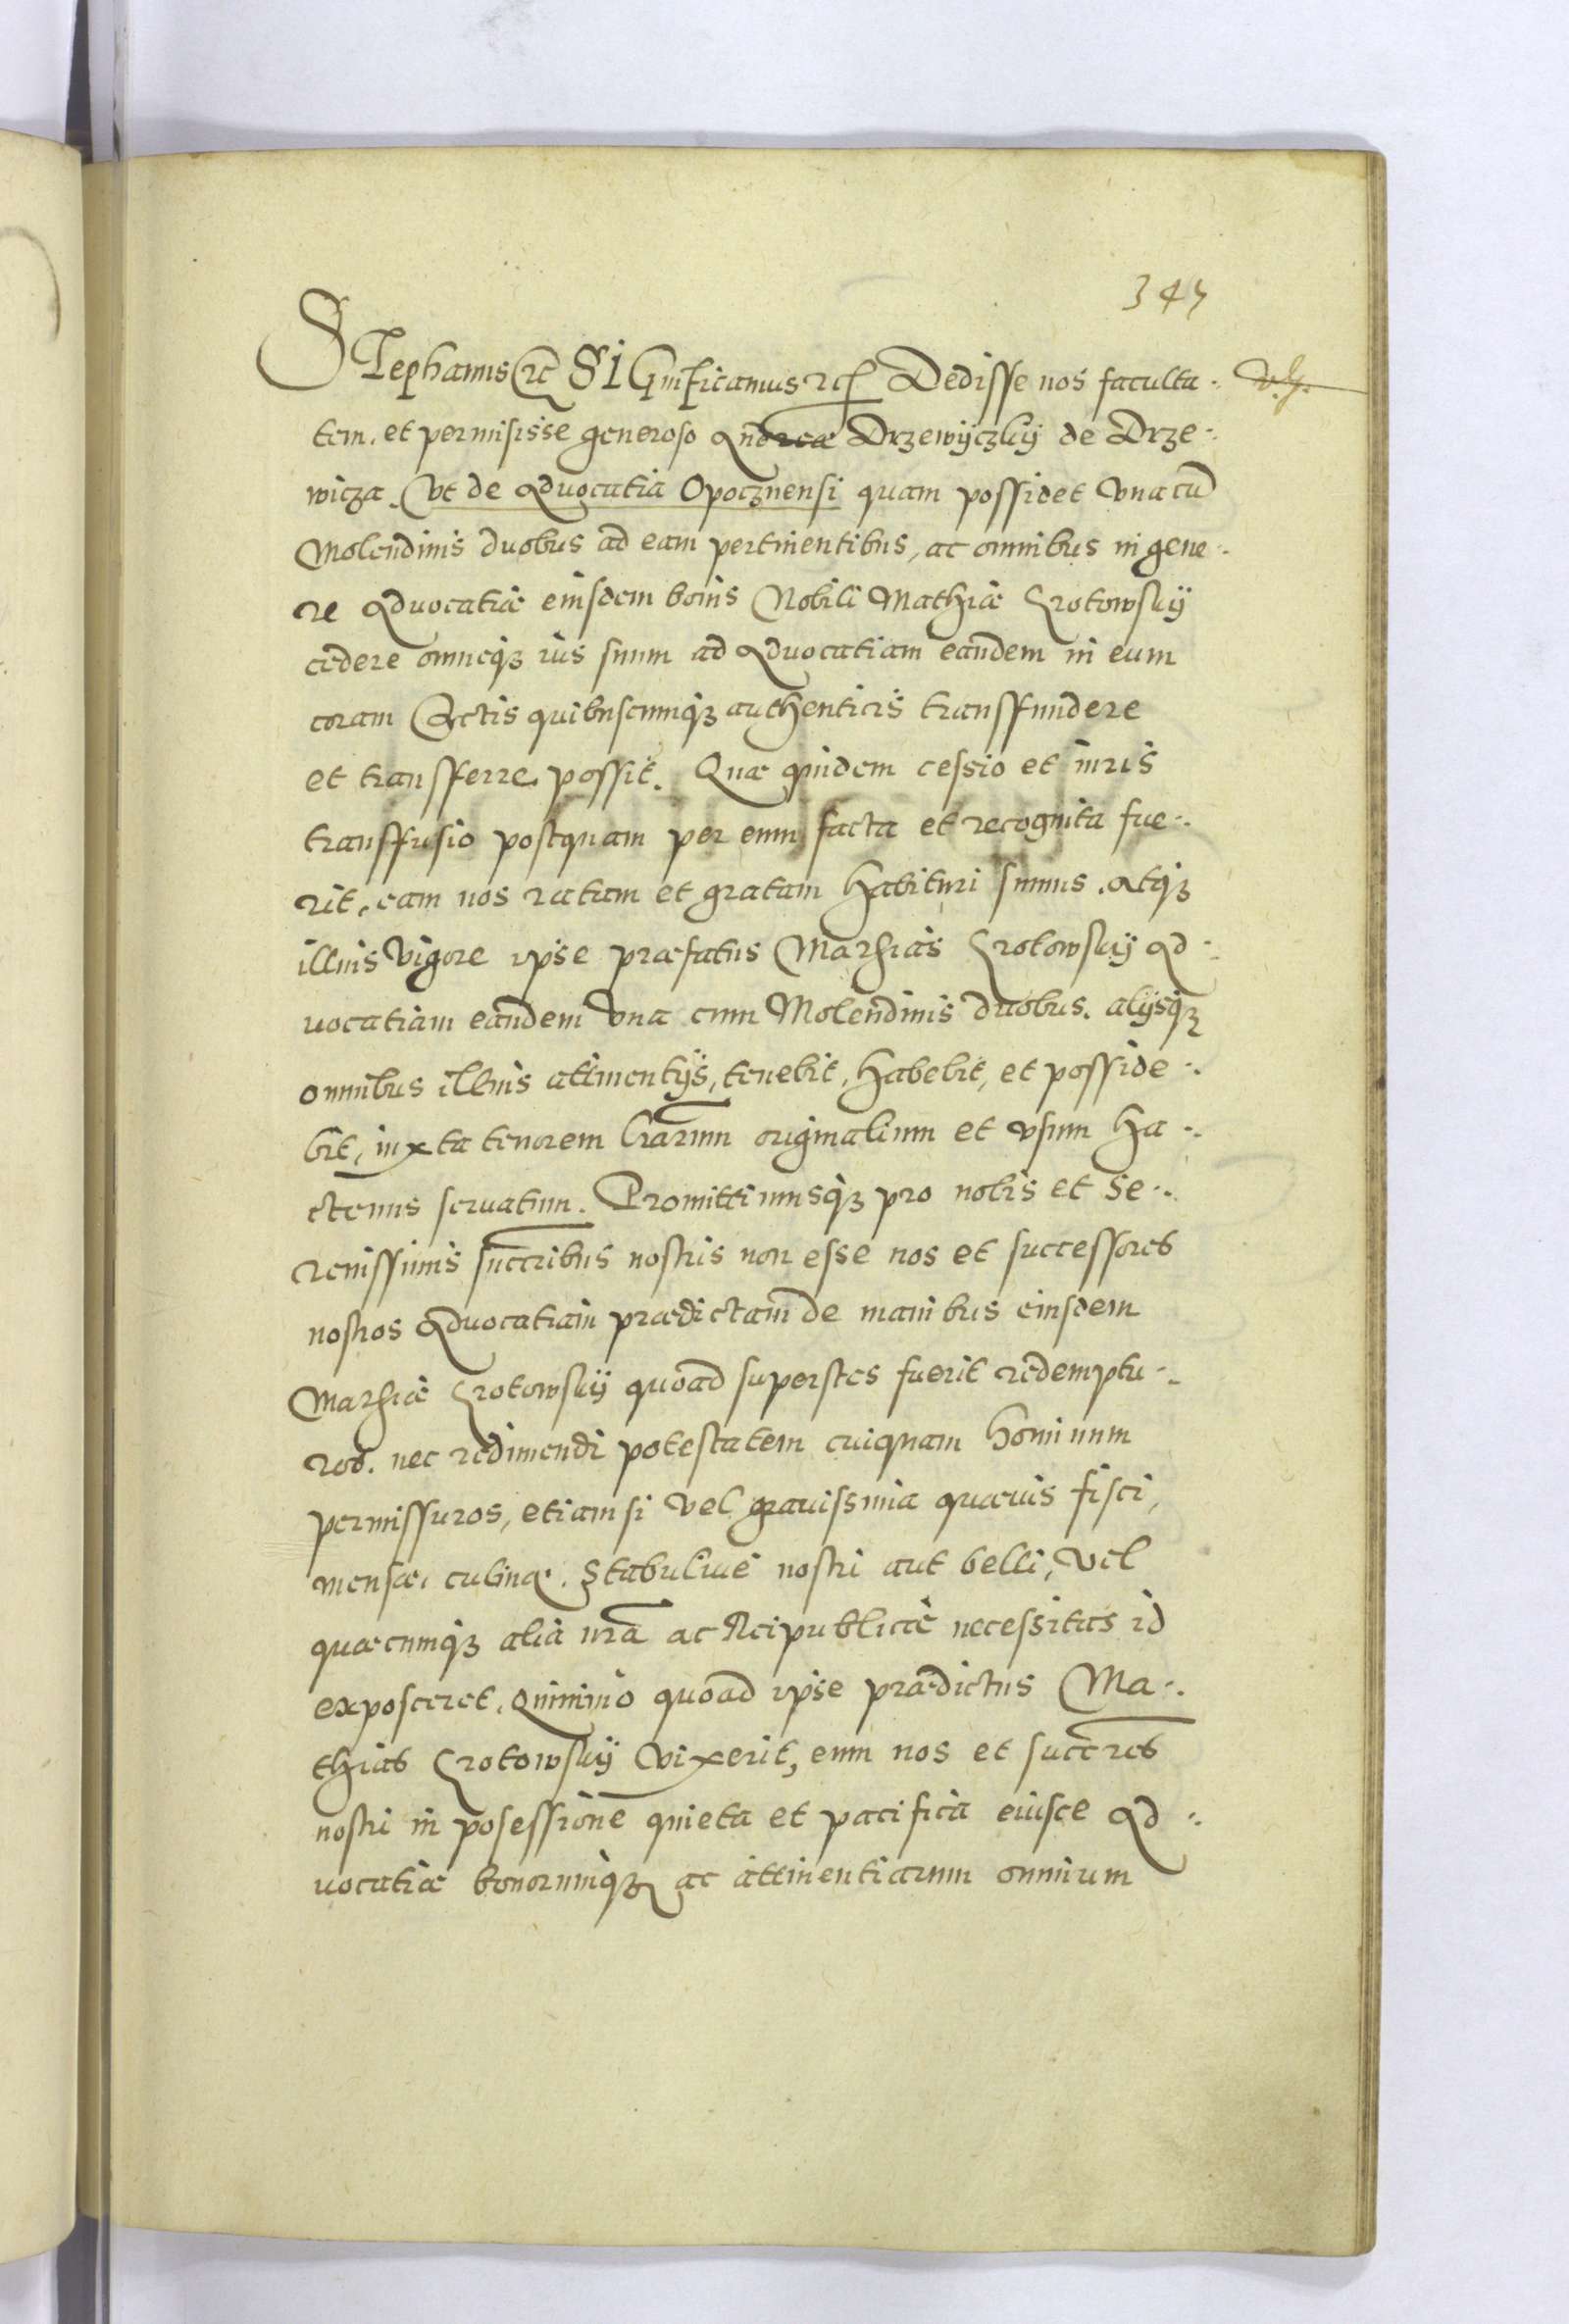 343
STephanus etc SIGnificamus etc Dedisse nos faculta-
tem. et permisisse generoso Andreæ Drzewyczky de Drze-
wicza. Vt de Aduocatia Opocznensi quam possidet vna cū
Molendinis duobus ad eam pertinentibus, ac omnibus in gene-
re Aduocatiæ eiusdem bonis Nobili Mathiæ Krotowsky
cedere omneqz ius suum ad Aduocatiam eandem in eum
coram Actis quibuscumqz authenticis transfundere
et transferre possit. Quæ quidem cessio et iuris
transfusio postquam per eum facta et recognita fue-
rit, eam nos ratam et gratam habituri sumus. Atqz
illius vigore ipse præfatus Mathias Krotowsky Ad-
uocatiam eandem vna cum Molendinis duobus. alijsqz
omnibus illius attinentijs, tenebit, habebit, et posside-
bit, iuxta tenorem lrarum originalium et vsum ha-
ctenus seruatum. Promittimusqz pro nobis et Se-
renissimis succribus nostris non esse nos et successores
nostros Aduocatiam prædictam de manibus eiusdem
Mathiæ Krotowsky quoad superstes fuerit redemptu-
ros. nec redimendi potestatem cuiquam hominum
permissuros, etiam si vel grauissima quæuis fisci,
mensæ, culinæ. Stabuliue nostri aut belli, vel
quæcumqz alia nrā ac Reipublicæ necessitas id
exposceret. Quinimo quoad ipse prædictus Ma-
thias Krotowsky vixerit, eum nos et succres
nostri in posessione quieta et pacifica eiusce Ad-
uocatiæ bonorumqz ac attinentiarum omnium